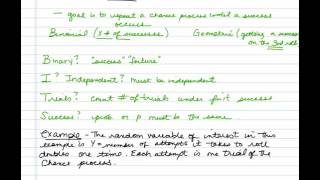 — goal is to repeat a chance process until a success
occurs
Binomial (X # of successes) Geometric (getting a success
on the 3rd roll
Binary? "success" "failure"
I? Independent? must be independent
Trials? count # of trials until first success
Success? prob or p must be the same
Example - The random variable of interest in this
example is Y = number of attempts it takes to roll
doubles one time. Each attempt is one trial of the
chance process.